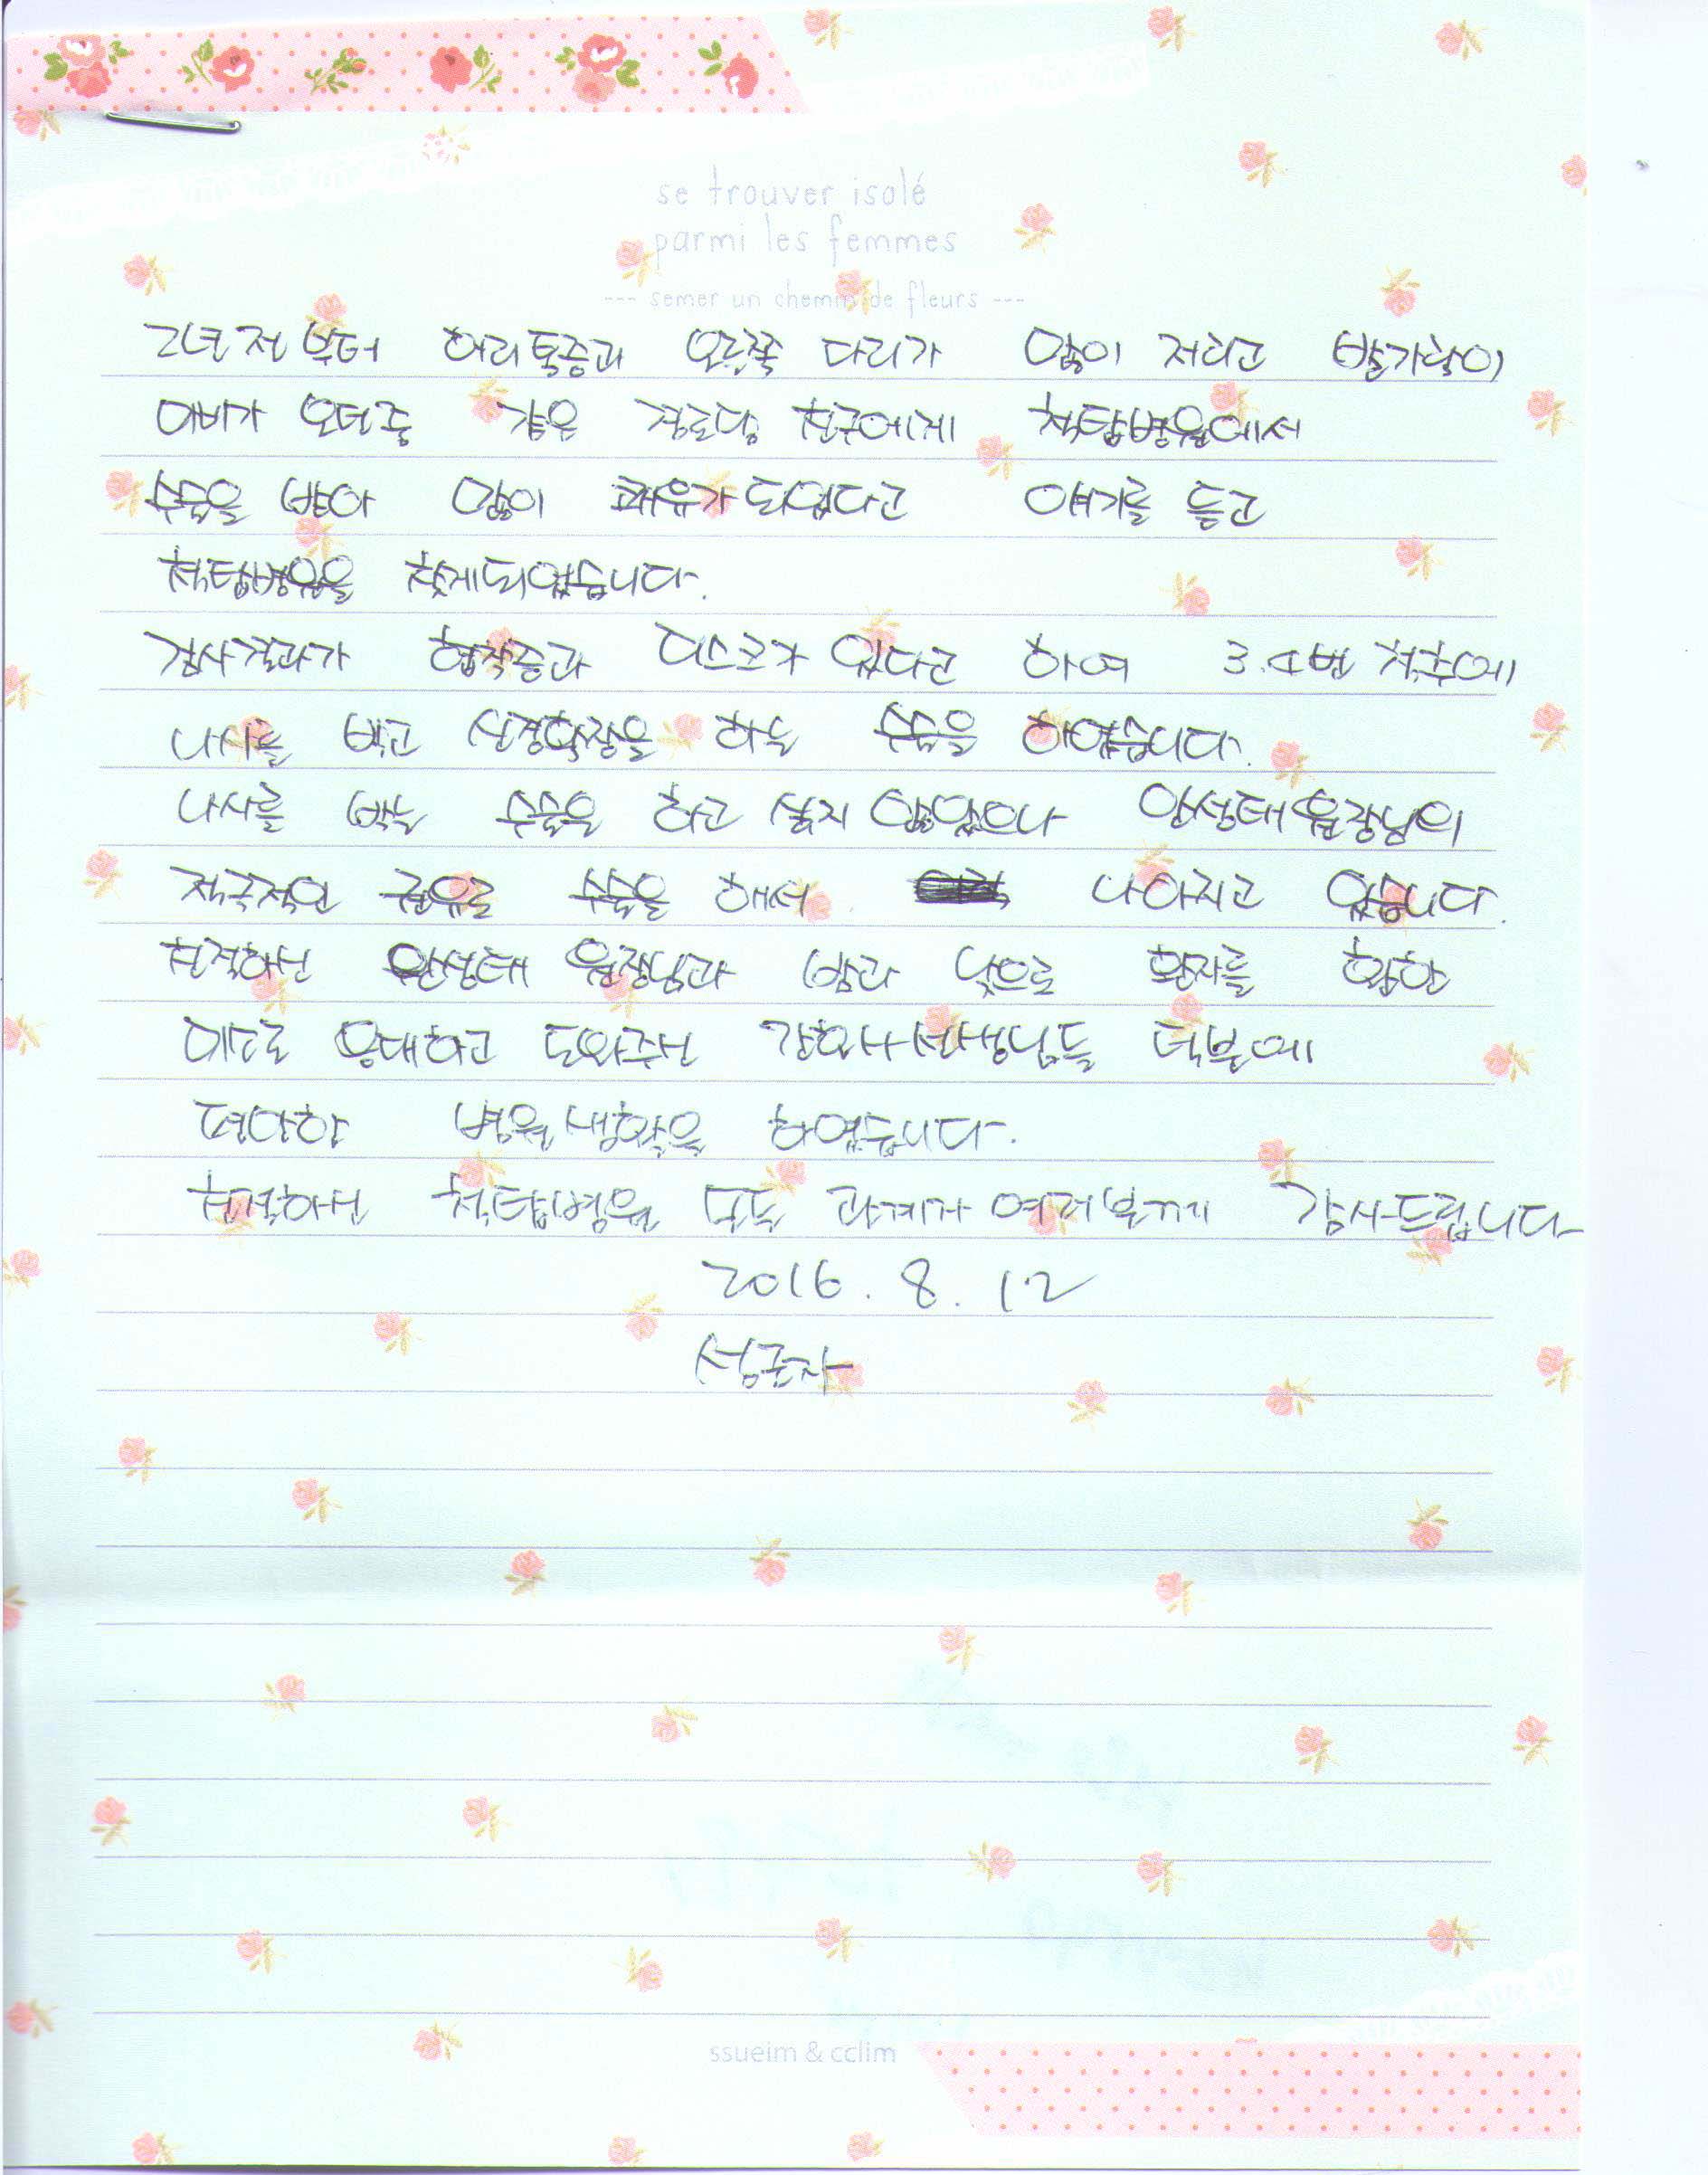 se trouver isolé
parmi les femmes
--- semer un chemin de fleurs ---
2년전부터 허리통증과 오른쪽 다리가 많이 저리고 발가락이
마비가 오던중 같은 경로당 친구에게 척탑병원에서
수술을 받아 많이 쾌유가 되었다고 얘기를 듣고
척탑병원을 찾게되었습니다.
검사결과가 협착증과 디스크가 있다고 하여 3.4번 척추에
나사를 박고 신경확장을 하는 수술을 하였습니다.
나사를 박는 수술을 하고 싶지 않았으나 안성태원장님의
적극적인 권유로 수술을 해서 나아지고 있습니다.
친절하신 안성태 원장님과 밤과 낮으로 환자를 환한
미소로 응대하고 도와주신 간호사선생님들 덕분에
편안한 병원생활을 하였습니다.
친절하신 척탑병원 모든 관계자 여러분께 감사드립니다
2016. 8. 12
성군자
ssueim & cclim